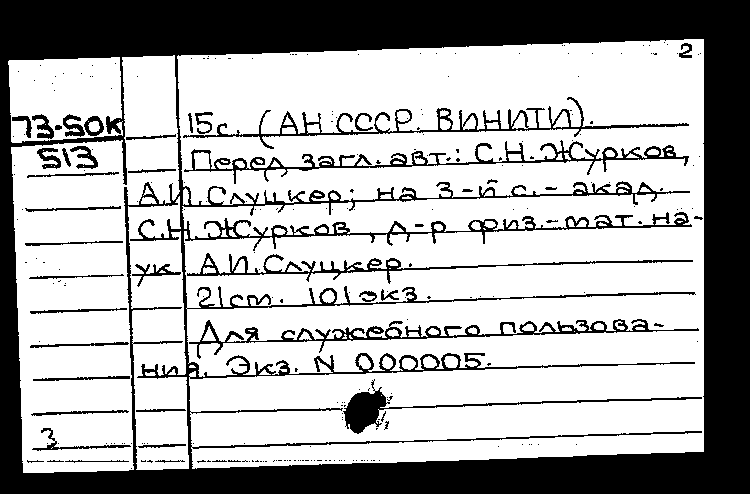 2
73-50к
513
15с. (АН СССР. ВИНИТИ).
Перед загл. авт.: С.Н.Журков,
А.И.Слуцкер; на 3-й с.- акад.
С.Н.Журков, д-р физ.-мат. на-
ук А.И.Слуцкер.
21см. 101экз.
Для служебного пользова-
ния. Экз. N 000005.
3